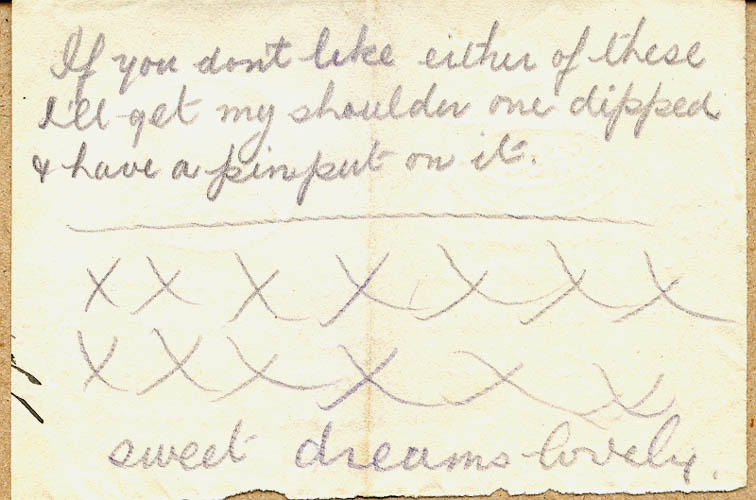 If you dont like either of these
I'll get my shoulder one dipped
& have a pin put on it.
x x x x x x x
x x x x x x
sweet dreams lovely.